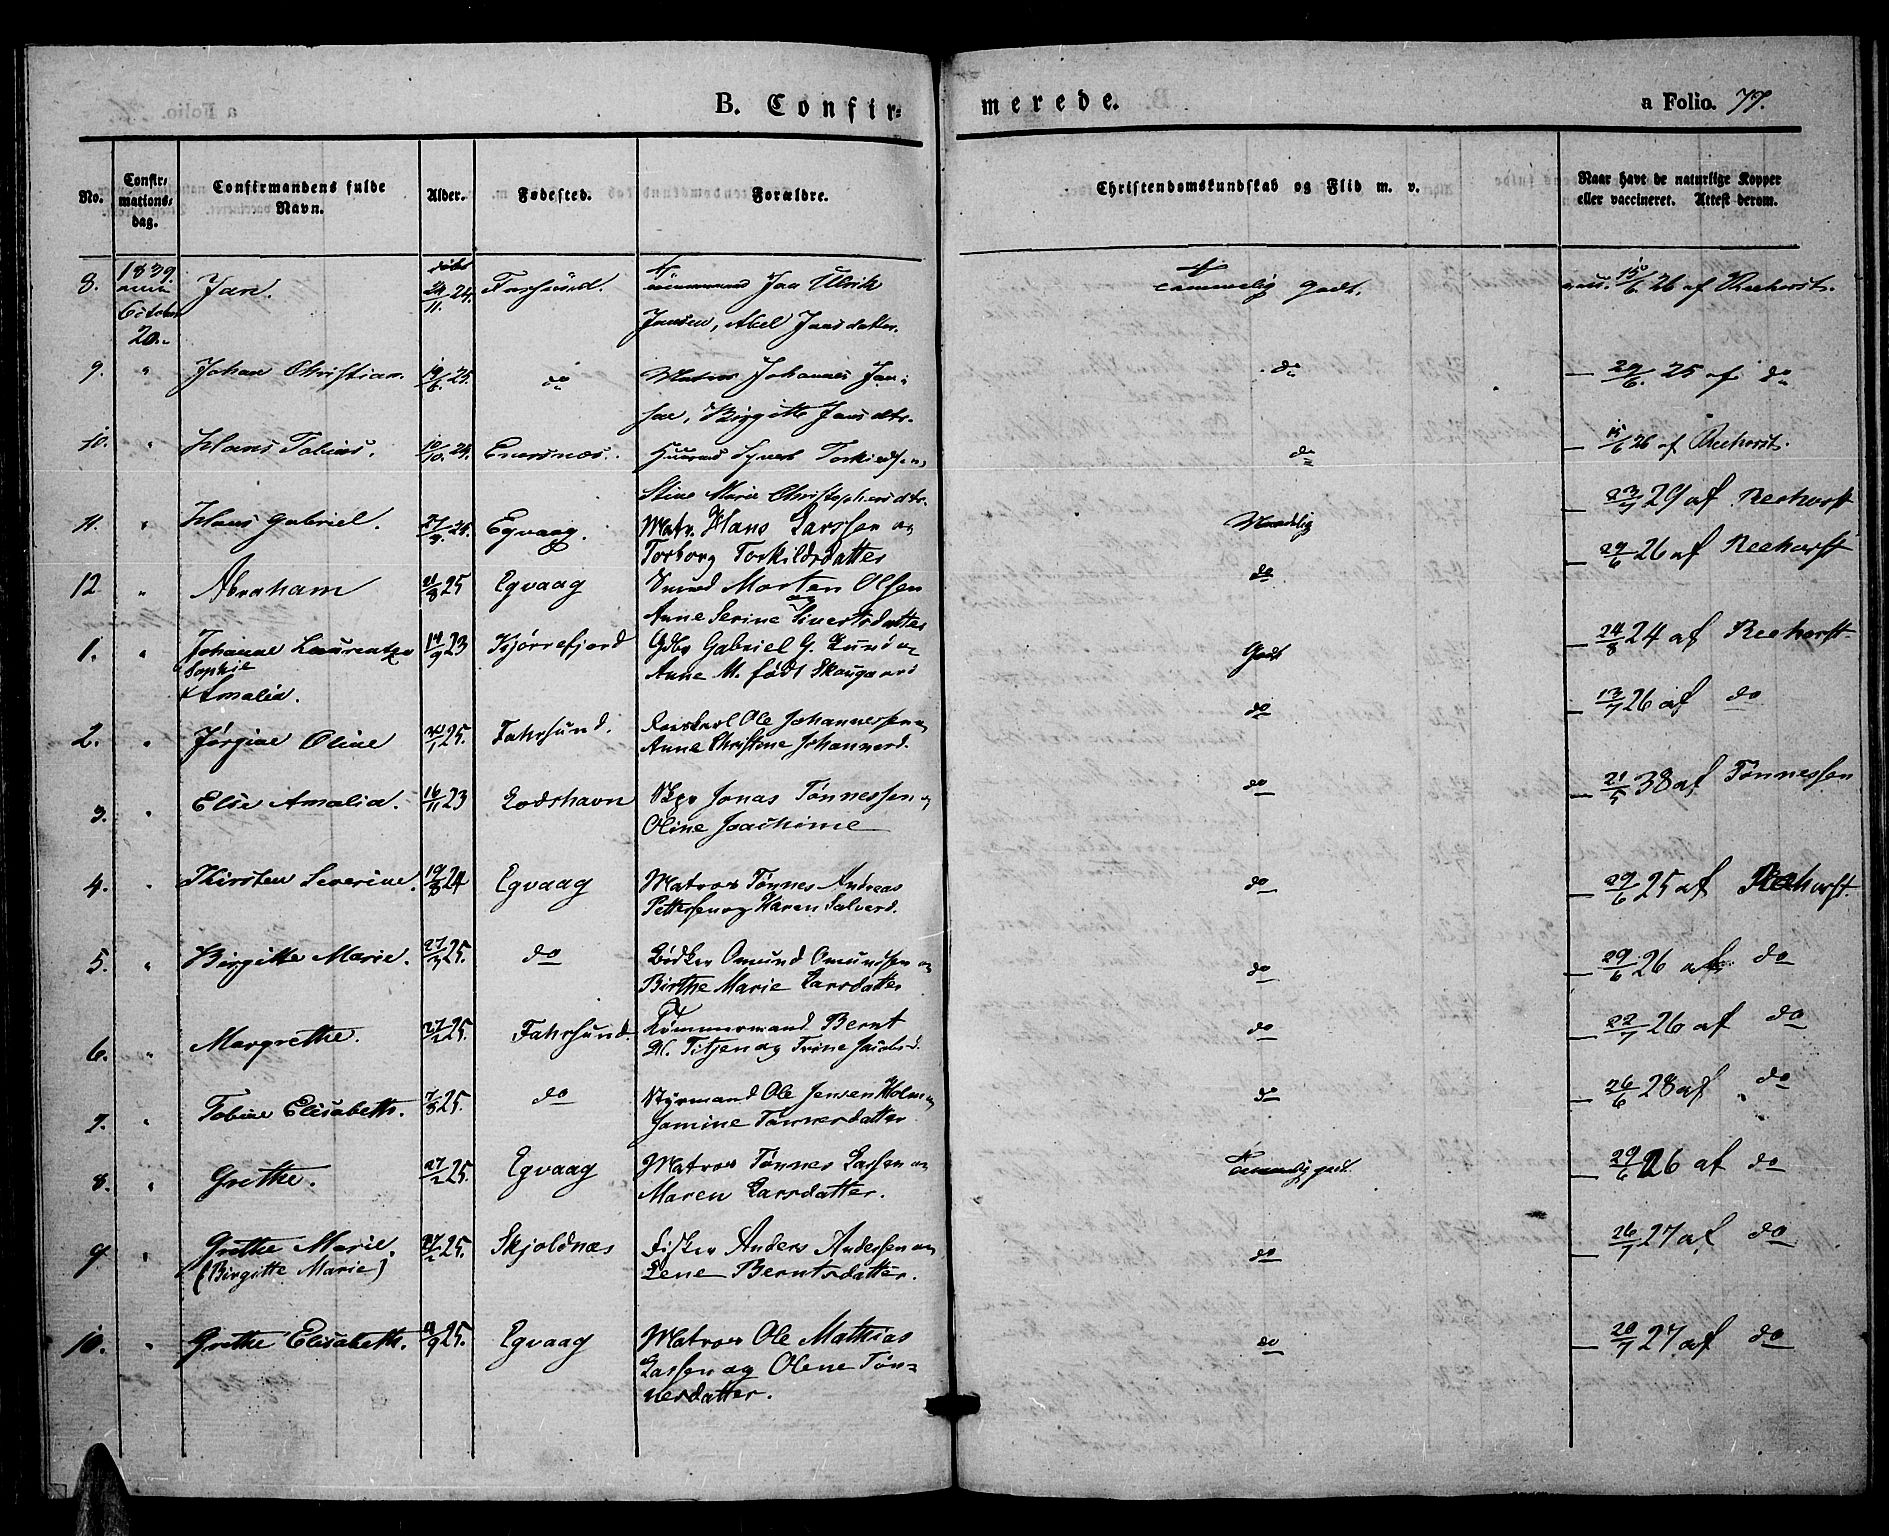 B. Confir-
merede.
a Folio. 77.
No.
Confir-
mations-
dag.
Confirmandens fulde
Navn.
Alder.
Fødested.
Forældre.
Christendomskundskab og Flid m. v.
Naar havt de naturlige Kopper
eller vaccineret. Attest derom.
8. 1839 Jan. 24/11 24. Farsund. Jan Ulrik
October
20. Jansen, Abel Jansdatter.
godt.
15/6 26 af Reehorst.
9. " Johan Christian. 19/6 25. do Matros Johannes Jan-
sen, Birgitte Jansdtr.
do
29/6 25 af do
10. " Hans Tobias. 10/10 24. Torkildsen,
Stine Marie Christophersdtr.
do
15/6 26 af Reehorst.
23/7 29 af Reehorst
11. " Hans Gabriel. Egvaag. Matr. Hans Larssen og
Torborg Torkildsdatter
Maadelig
29/6 26 af Reehorst
12 " Abraham 21/8 25 Egvaag Morten Olsen
og
Anne Serine Sivertsdatter
do
1. " Johanne Laurentze 14/9 23 Kjørrefjord Gabriel G. Lund og
Sophie
Amalia. Anne M. født Skougaard
Godt
24/8 24 af Reehorst
2. " Jørgine Oline 30/1 25. Fahrsund. Ole Johannessen og
Anne Christine Johannesd.
do
13/7 26 af do
3. " Elie Amalia. 16/11 23 Lodshavn Jonas Tønnessen og
Oline Joachime
do
21/5 38 af Tønnessen
4. " Kirsten Severine. 19/8 24 Egvaag Matros Tønnes Andreas
Pettersen og Karen Salvesd.
do
29/6 25 af Reehorst.
5. " Birgitte Marie. 27/3 25. do Bødker Omund Omundsen og
Birthe Marie Larsdatter
do
29/6 26 af do
6. " Margrethe. 27/2 25. Fahrsund. Tømmermand Bernt
H. Titjen og Trine Jacobsd.
do
22/7 26 af do
7. " Tobine Elisabeth. 7/3 25. do Styrmand Ole Jensen Holm og
Jamine Tønnesdatter
do
26/6 28 af do
8. " Grethe. 27/2 25. Egvaag Matros Tønnes Lassen og
Maren Larsdatter.
Temmelig godt.
29/6 26 af do
9. " Grethe Marie. 27/2 25. Skjoldnæs Fisker Anders Andersen og
(Birgitte Marie) Lene Berntsdatter.
do
26/7 27 af do
10. " Grethe Elisabeth. 11/9 25. Egvaag Matros Ole Mathias
Lassen og Olene Tøn-
nesdatter.
do
20/7 27 af do